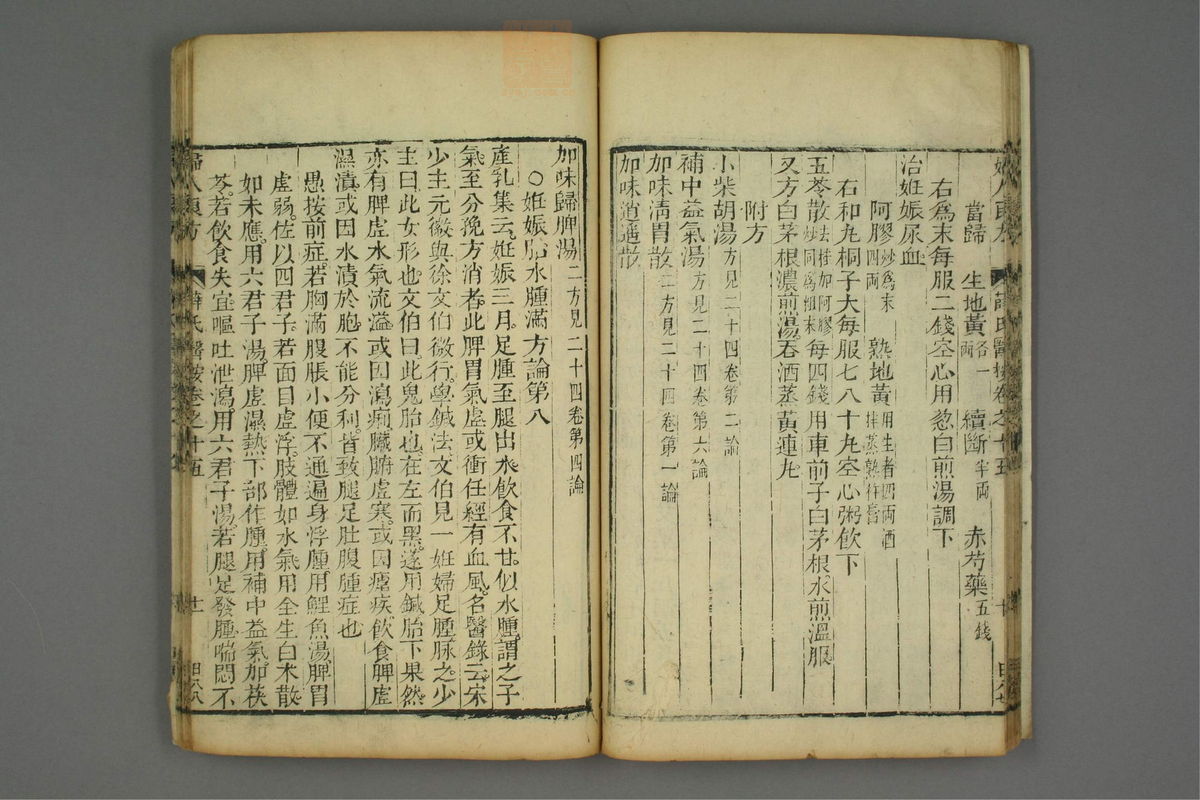 當歸 生地黃各一兩 續斷半兩 赤芍藥五錢
右為末每服二錢空心用葱白煎湯調下
治姙娠尿血
阿膠炒為末四兩 熟地黃用生者四兩酒拌蒸熟杵膏
右和丸桐子大每服七八十丸空心粥飲下
五苓散 每四錢用車前子白茅根水煎溫服
又方白茅根濃煎湯吞酒蒸黃連丸
附方
小柴胡湯方見二十四卷第二論
補中益氣湯方見二十四卷第六論
加味清胃散
加味逍遥散二方見二十四卷第一論
加味歸脾湯二方見二十四卷第四論
○姙娠胎水腫滿方論第八
產乳集云姙娠三月足腫至腿出水飲食不甘似水腫謂之子
氣至分娩方消者此脾胃氣虛或衝任經有血風名醫錄云宋
少主元徽與徐文伯微行學鍼法文伯見一姙婦足腫脉之少
主曰此女形也文伯曰此鬼胎也在左而黑遂用鍼胎下果然
亦有脾虛水氣流溢或因瀉痢臟腑虛寒或因瘧疾飲食脾虛
濕漬或因水漬於胞不能分利皆致腿足肚腹腫症也
愚按前症若胸滿腹脹小便不通遍身浮腫用鯉魚湯脾胃
虛弱佐以四君子若面目虛浮肢體如水氣用全生白术散
如未應用六君子湯脾虛濕熱下部作腫用補中益氣加茯
苓若飲食失宜嘔吐泄瀉用六君子湯若腿足發腫喘悶不
婦人良方 薛氏醫按卷之十五 十一 田六八